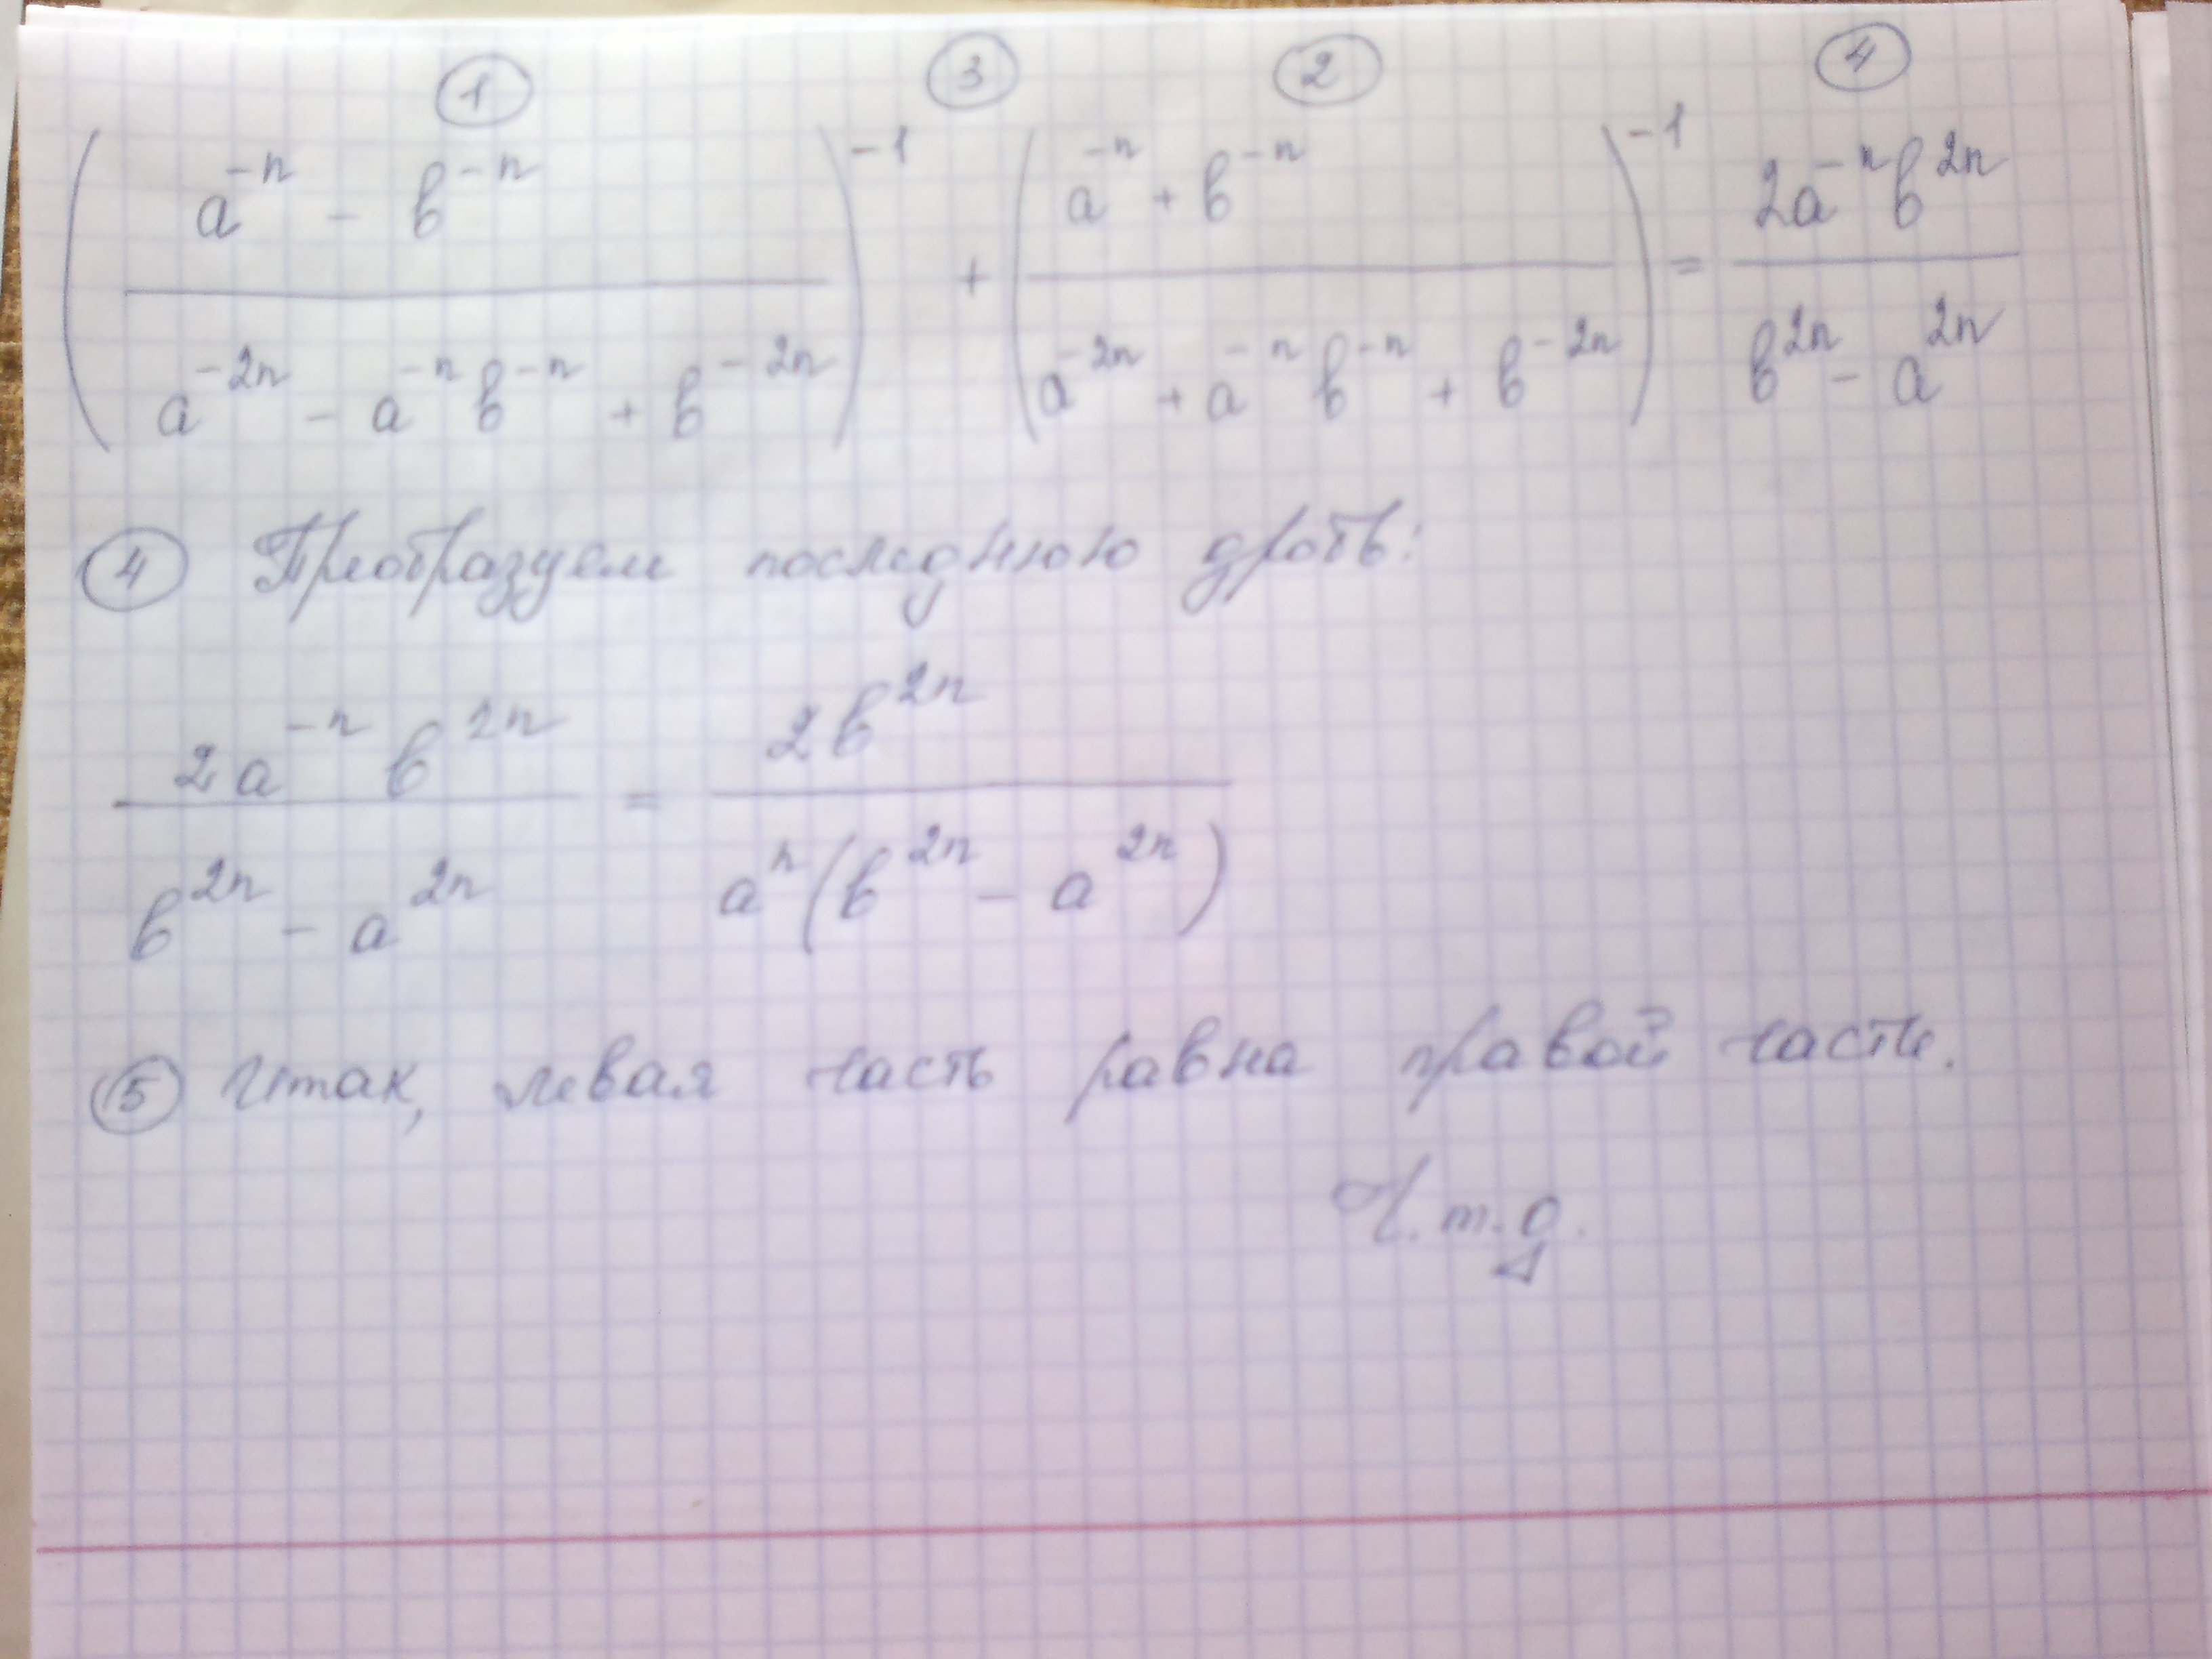 ① ③ ② ④
(a⁻ⁿ - b⁻ⁿ / a⁻²ⁿ - a⁻ⁿ b⁻ⁿ + b⁻²ⁿ)⁻¹ + (a⁻ⁿ + b⁻ⁿ / a⁻²ⁿ + a⁻ⁿ b⁻ⁿ + b⁻²ⁿ)⁻¹ = 2a⁻ⁿb²ⁿ / b²ⁿ - a²ⁿ
④ Преобразуем последнюю дробь:
2a⁻ⁿ b²ⁿ / b²ⁿ - a²ⁿ = 2b²ⁿ / aⁿ(b²ⁿ - a²ⁿ)
⑤ Итак, левая часть равна правой части.
Ч.т.д.